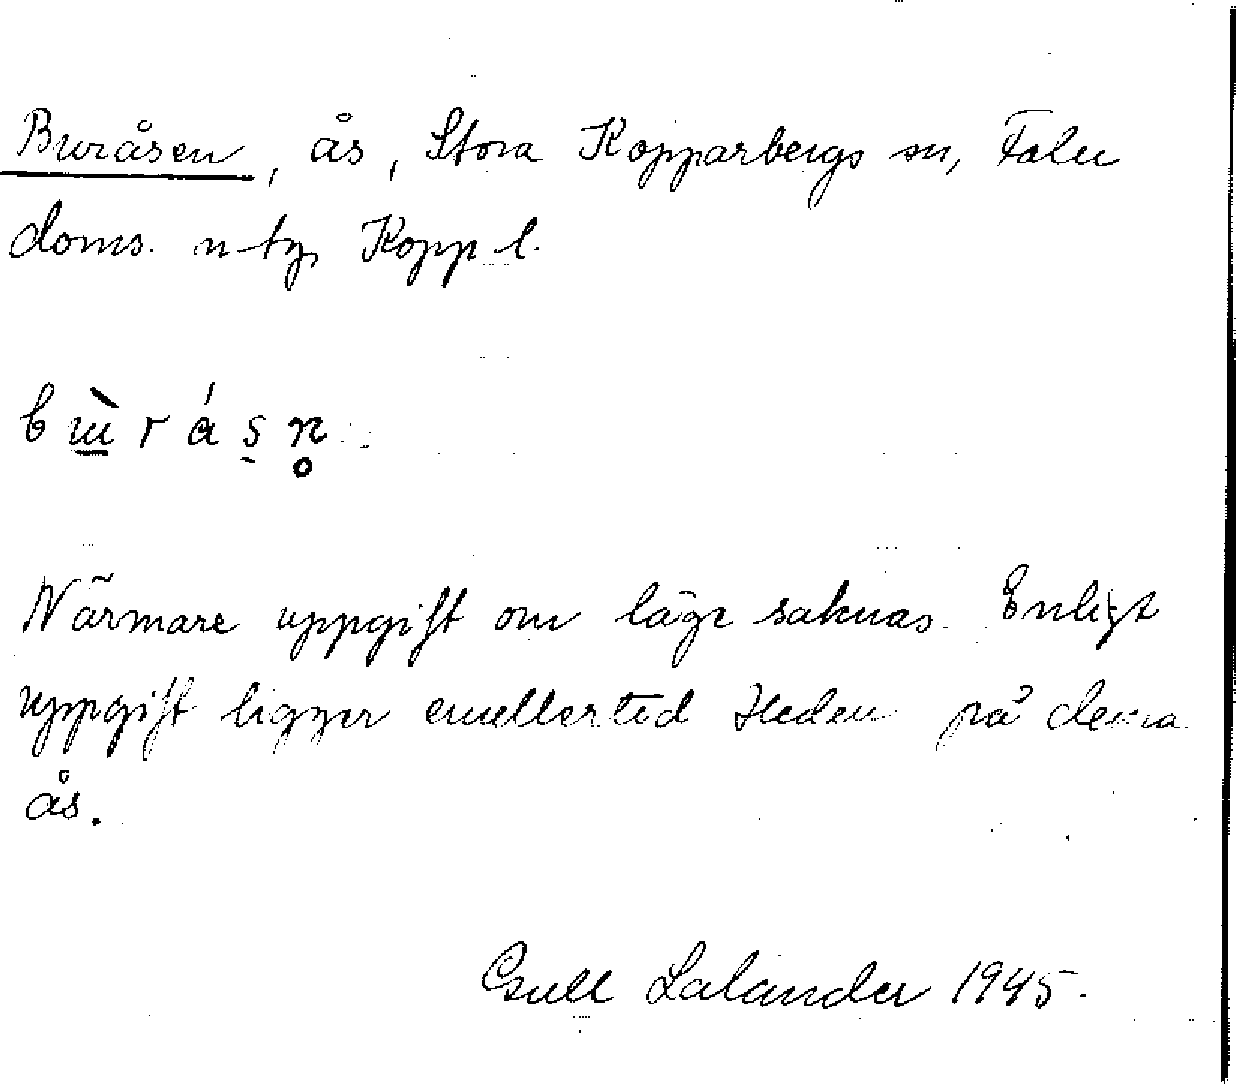 Buråsen, ås, Stora Kopparbergs sn, Falu
doms. n tg, Kopp l.
bù̲råsn̥
Närmare uppgift om läge saknas. Enligt
uppgift ligger emellertid Heden på denna
ås.
Lalander 1945.